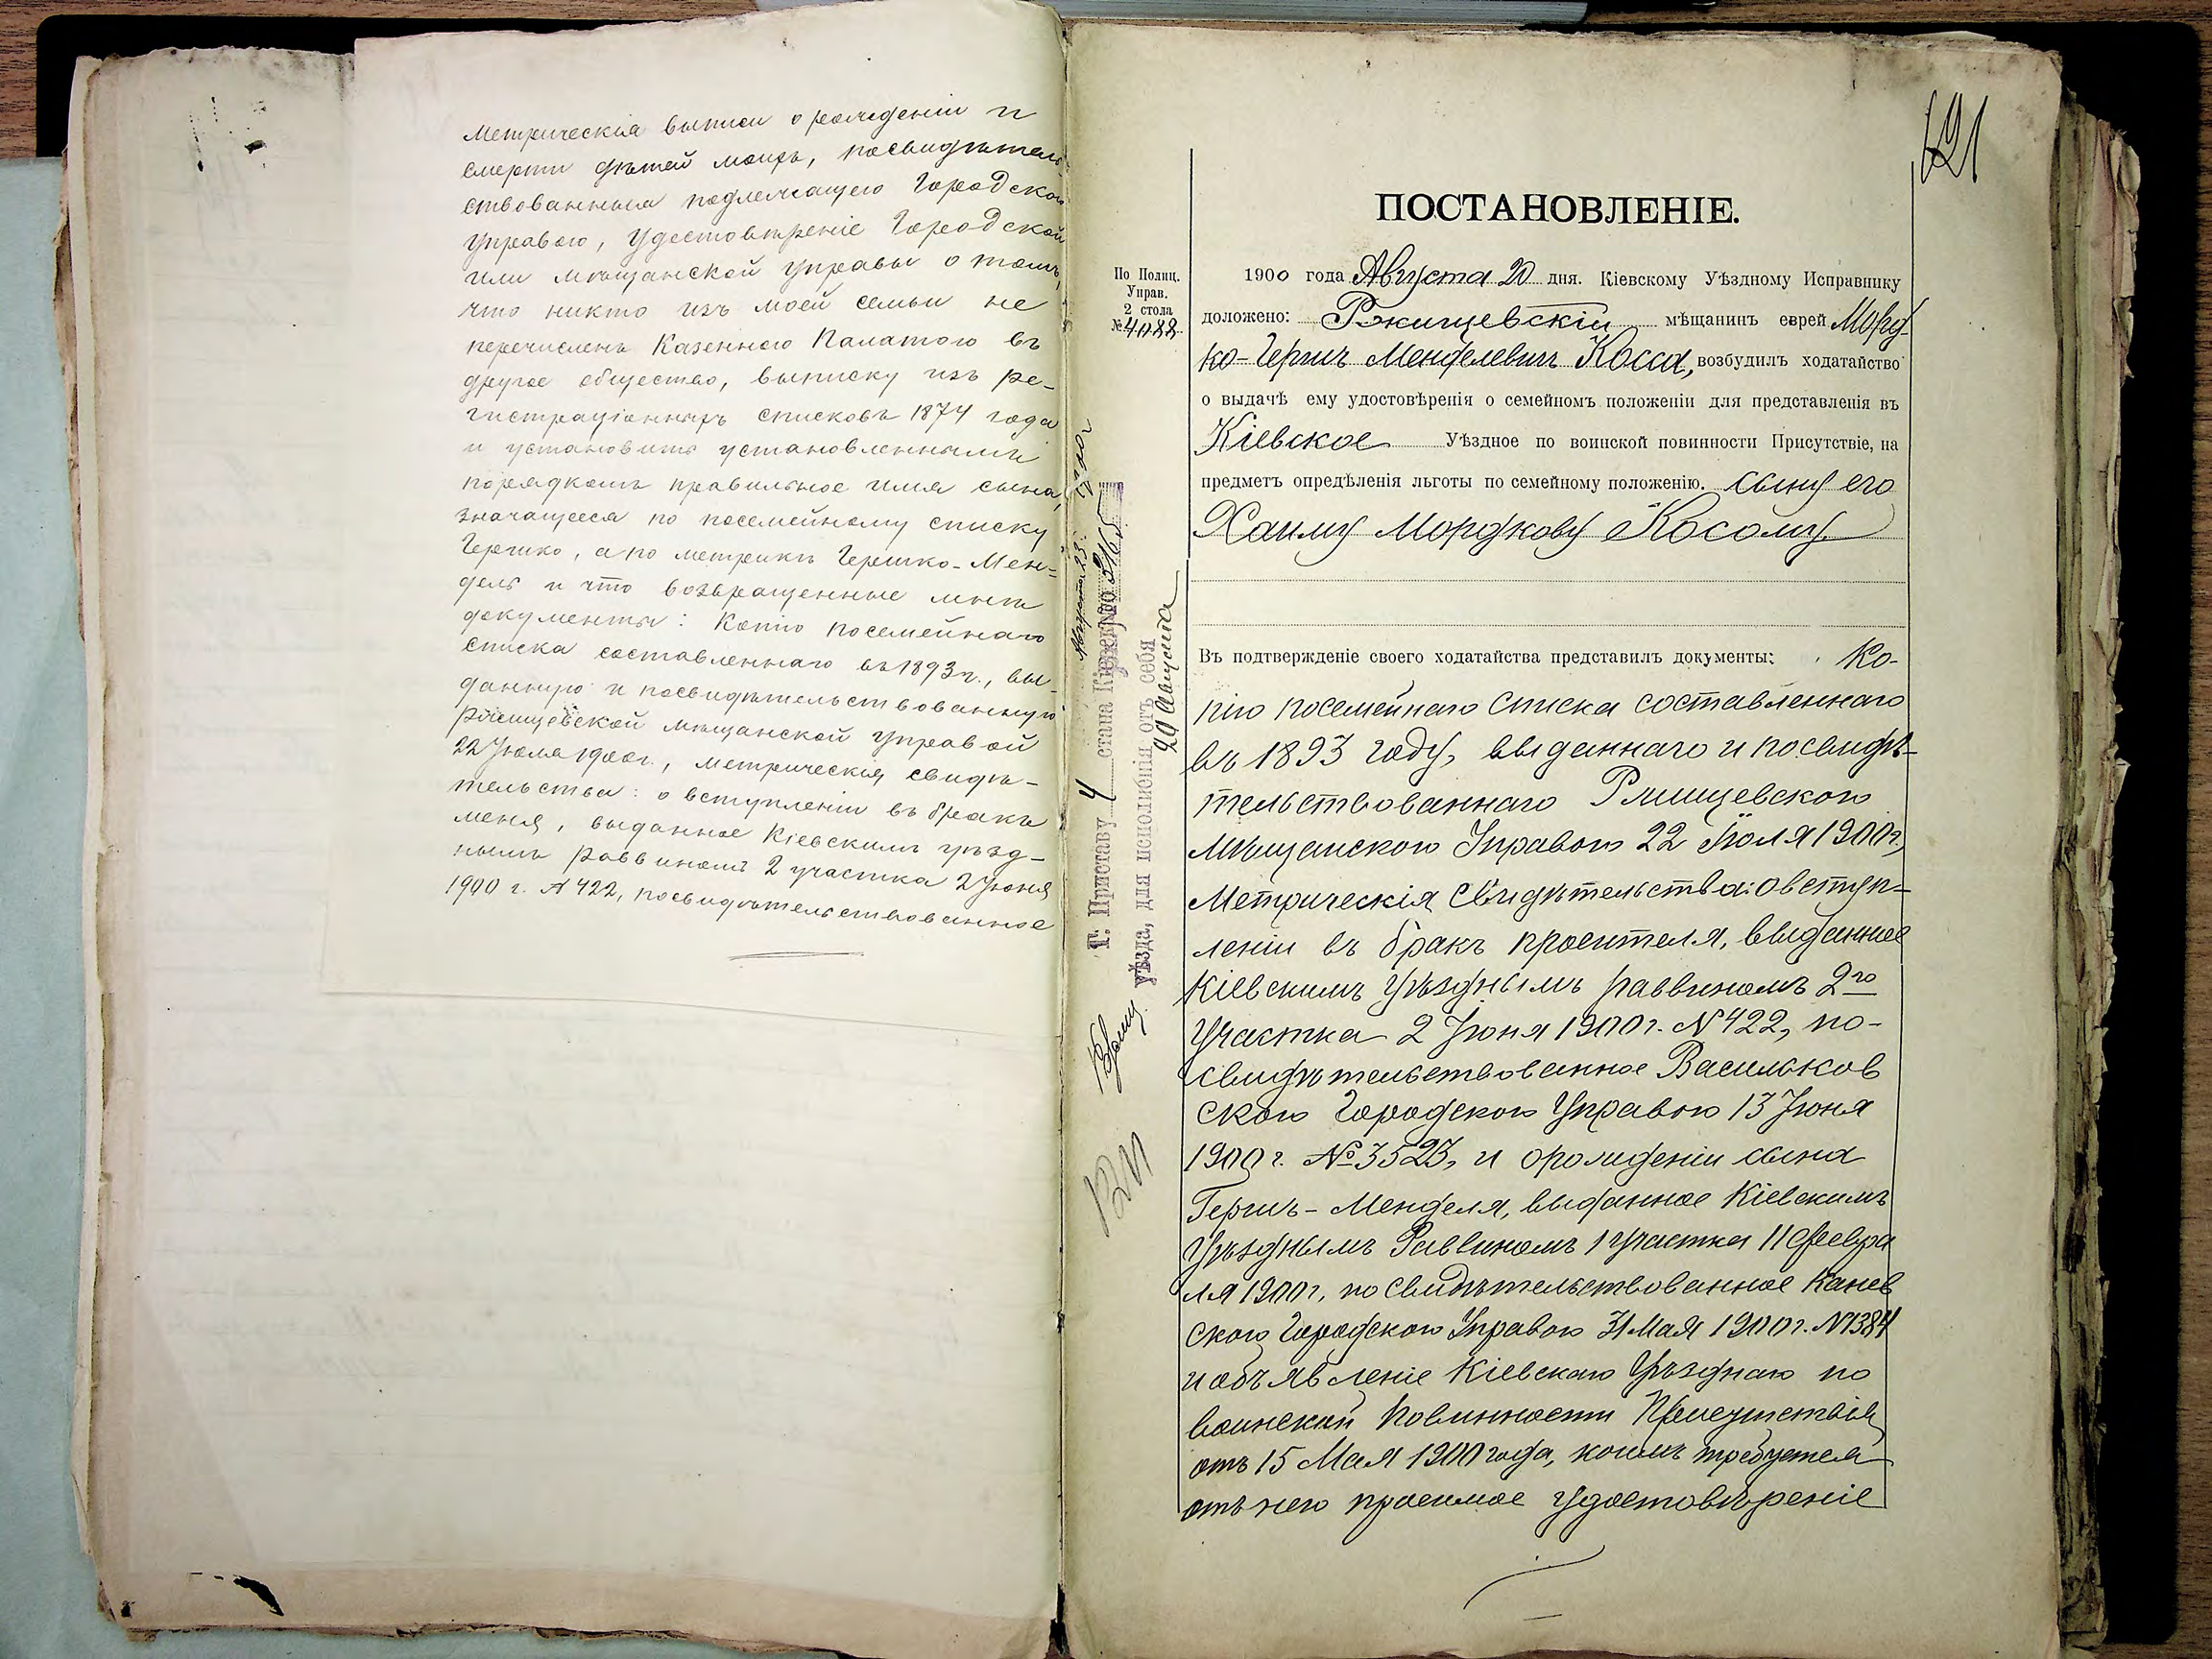 Метрическія выписи о рожденіи и
смерти дѣтей моихъ, посвидѣтель
ствованныя подлежащею Городскою
Управою, удостовѣреніе Городской
или мѣщанской управы о томъ,
что никто изъ моей семьи не
перечисленъ Казенною Палатою въ
другое общество, выписку изъ ре-
гистраціонныхъ списковъ 1874 года
и установить установленнымъ
порядкомъ правильное имя сына,
значащееся по посемейному списку
Гершко, а по метрикѣ Гершко-Мен-
дель и что возвращенные мнѣ
документы: Копію посемейнаго
списка составленнаго въ 1893 г., вы-
данную и посвидѣтельствованную
Ржищевской мѣщанской управой
22 Іюля 1900 г., метрическія свидѣ-
тельства: о вступленіи въ бракъ
меня, выданное Кіевскимъ уѣзд-
нымъ раввиномъ 2 участка 2 Іюня
1900 г. № 422, посвидѣтельствованное
121
ПОСТАНОВЛЕНІЕ.
По Полиц.
Управ.
2 стола
№ 4088
1900 года Августа 20 дня. Кіевскому Уѣздному Исправнику
доложено: Ржищевскій мѣщанинъ еврей Морд-
ко-Гершъ Менделевичъ Косой, возбудилъ ходатайство
о выдачѣ ему удостовѣренія о семейномъ положеніи для представленія въ
Кіевское Уѣздное по воинской повинности Присутствіе, на
предметъ опредѣленія льготы по семейному положенію. сыну его
Хаиму Мордкову Косому.
Въ подтвержденіе своего ходатайства представилъ документы: Ко-
пію посемейнаго списка составленнаго
въ 1893 году, выданнаго и посвидѣ-
тельствованнаго Ржищевскою
мѣщанскою Управою 22 Іюля 1900 г.,
Метрическія свидѣтельства: о вступ-
леніи въ бракъ просителя, выданное
Кіевскимъ уѣзднымъ раввиномъ 2го
участка 2 Іюня 1900 г. № 422, по-
свидѣтельствованное Васильков
скою Городскою Управою 13 Іюня
1900 г. № 3523, и о рожденіи сына
Гершъ-Менделя, выданное Кіевскимъ
Уѣзднымъ Раввиномъ 1 участка 11 Февра
ля 1900 г, посвидѣтельствованное Канев
скою Городскою Управою 31 Мая 1900 г. № 1384
и объявленіе Кіевскаго Уѣзднаго по
воинской повинности Присутствія
отъ 15 Мая 1900 года, коимъ требуется
отъ него просимое удостовѣреніе
Г. Приставу 4 стана Кіевскаго
уѣзда, для исполненія отъ себя
20 Августа